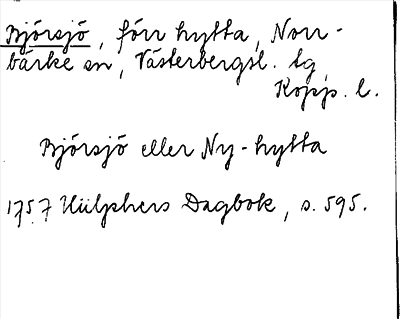 Björsjö, förr hytta, Norr-
bärke sn, Västerbergsl. tg,
Kopp. l.
Björsjö eller Ny-hytta
1757 Hülphers Dagbok, s. 595.